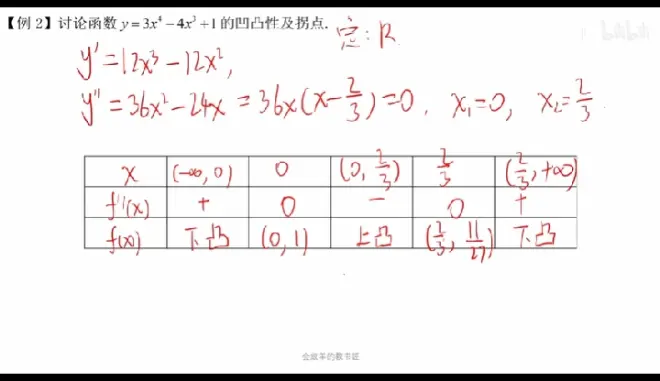 【例 2】讨论函数 y = 3x⁴ − 4x³ + 1 的凹凸性及拐点. 定: R
y' = 12x³ − 12x²,
y'' = 36x² − 24x = 36x(x − 2/3) = 0, x₁ = 0, x₂ = 2/3
x (−∞, 0) 0 (0, 2/3) 2/3 (2/3, +∞)
f''(x) + 0 − 0 +
f(x) 下凸 (0, 1) 上凸 (2/3, 11/27) 下凸
会做羊的教书匠
bilibili